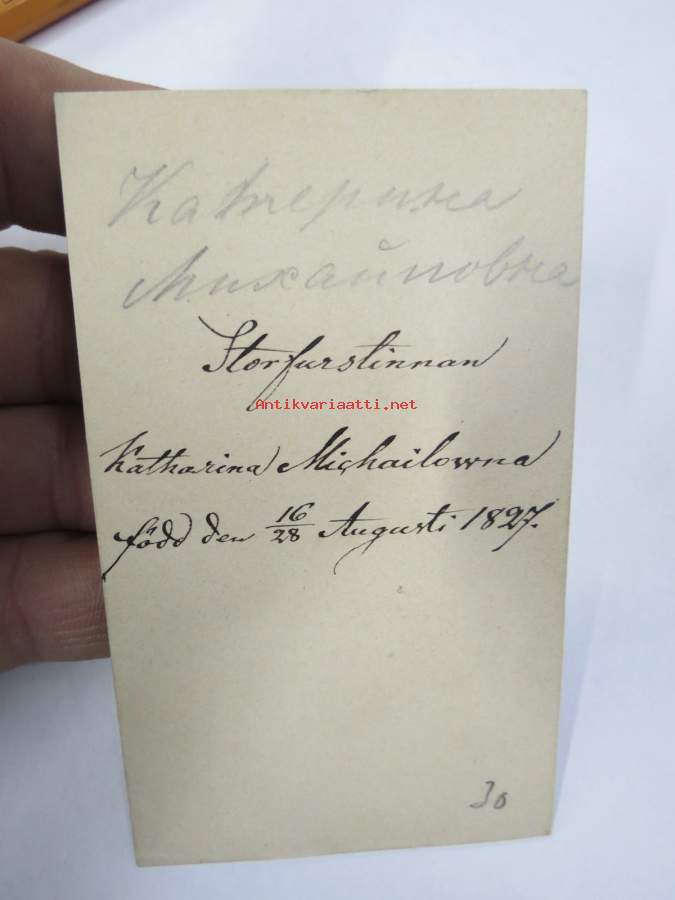 Катерина
Михайловна
Storfurstinnan
Antikvariaatti.net
Katharina Michailowna
född den 16/28 Augusti 1827.
30